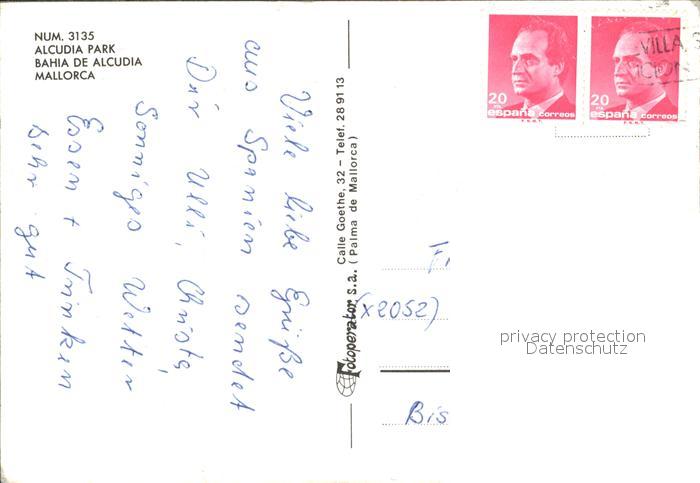 NUM. 3135
ALCUDIA PARK
BAHIA DE ALCUDIA
MALLORCA
Viele liebe Grüße
aus Spanien sendet
Dir Ulli, Christa,
Sonniges Wetter
Essen + Trinken
sehr gut
Fotoperator, s.a.
Calle Goethe, 32 – Telef. 28 91 13
(Palma de Mallorca)
20
PTA
españa correos
F.N.M.T.
20
PTA
españa correos
F.N.M.T.
VILLA
(x2052)
Bis
privacy protection
Datenschutz